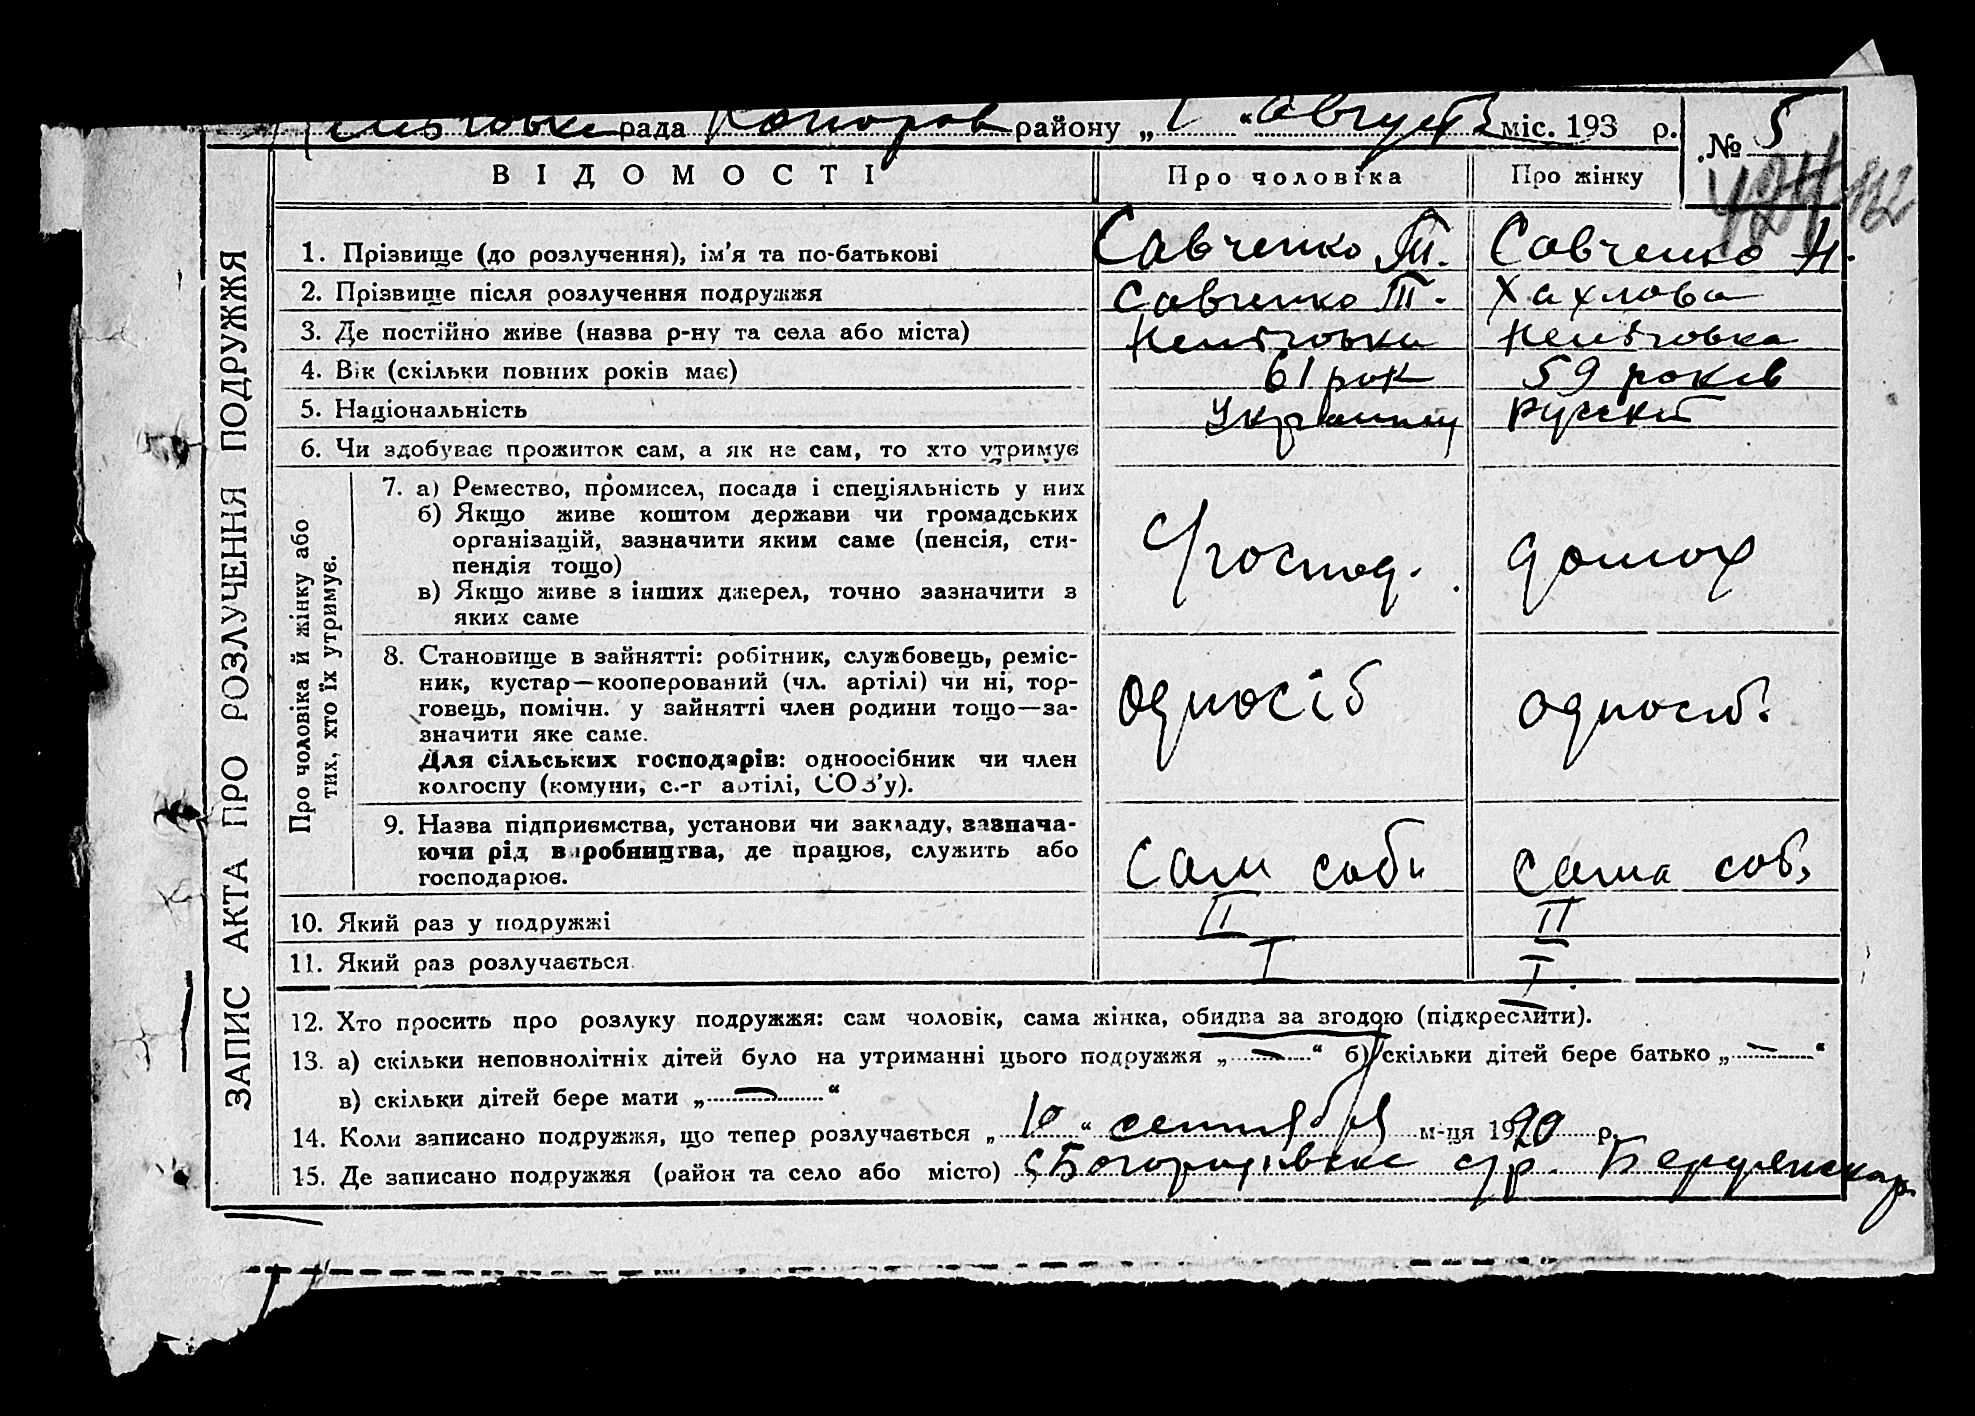 рада районү „1“ августа міс. 193 р. № 5
ВІДОМОСТІ Про чоловіка Про жінку
ЗАПИС АКТА ПРО РОЗЛУЧЕННЯ ПОДРУЖЖЯ
1. Прізвище (до розлучення), ім'я та по-батькові Савченко Т. Савченко Н.
2. Прізвище після розлучення подружжя Савченко Т. Хахлова
3. Де постійно живе (назва р-ну та села або міста)
4. Вік (скільки повних років має) 61 рок 59 років
5. Національність Украинец Русский
6. Чи здобуває прожиток сам, а як не сам, то хто утримує
Про чоловіка й жінку або
тих, хто їх утримує.
7. а) Ремество, промисел, посада і спеціяльність у них
б) Якщо живе коштом держави чи громадських
організацій, зазначити яким саме (пенсія, сти-
пендія тощо)
с/господ. домох
в) Якщо живе з інших джерел, точно зазначити з
яких саме
8. Становище в зайнятті: робітник, службовець, реміс-
ник, кустар—кооперований (чл. артілі) чи ні, тор-
говець, помічн. у зайнятті член родини тощо—за-
значити яке саме.
односіб односіб.
Для сільських господарів: одноосібник чи член
колгоспу (комуни, с.-г артілі, СОЗ'у).
9. Назва підприємства, установи чи закладу, зазнача-
ючи рід виробництва, де працює, служить або
господарює.
сам соби сама соб
10. Який раз у подружжі II II
11. Який раз розлучається I I
12. Хто просить про розлуку подружжя: сам чоловік, сама жінка, обидва за згодою (підкреслити).
13. а) скільки неповнолітніх дітей було на утриманні цього подружжя „—“ б) скільки дітей бере батько „—“
в) скільки дітей бере мати „—“
14. Коли записано подружжя, що тепер розлучається „10“ сентября м-ця 1920 р.
15. Де записано подружжя (район та село або місто) с/р. Бердянск р.